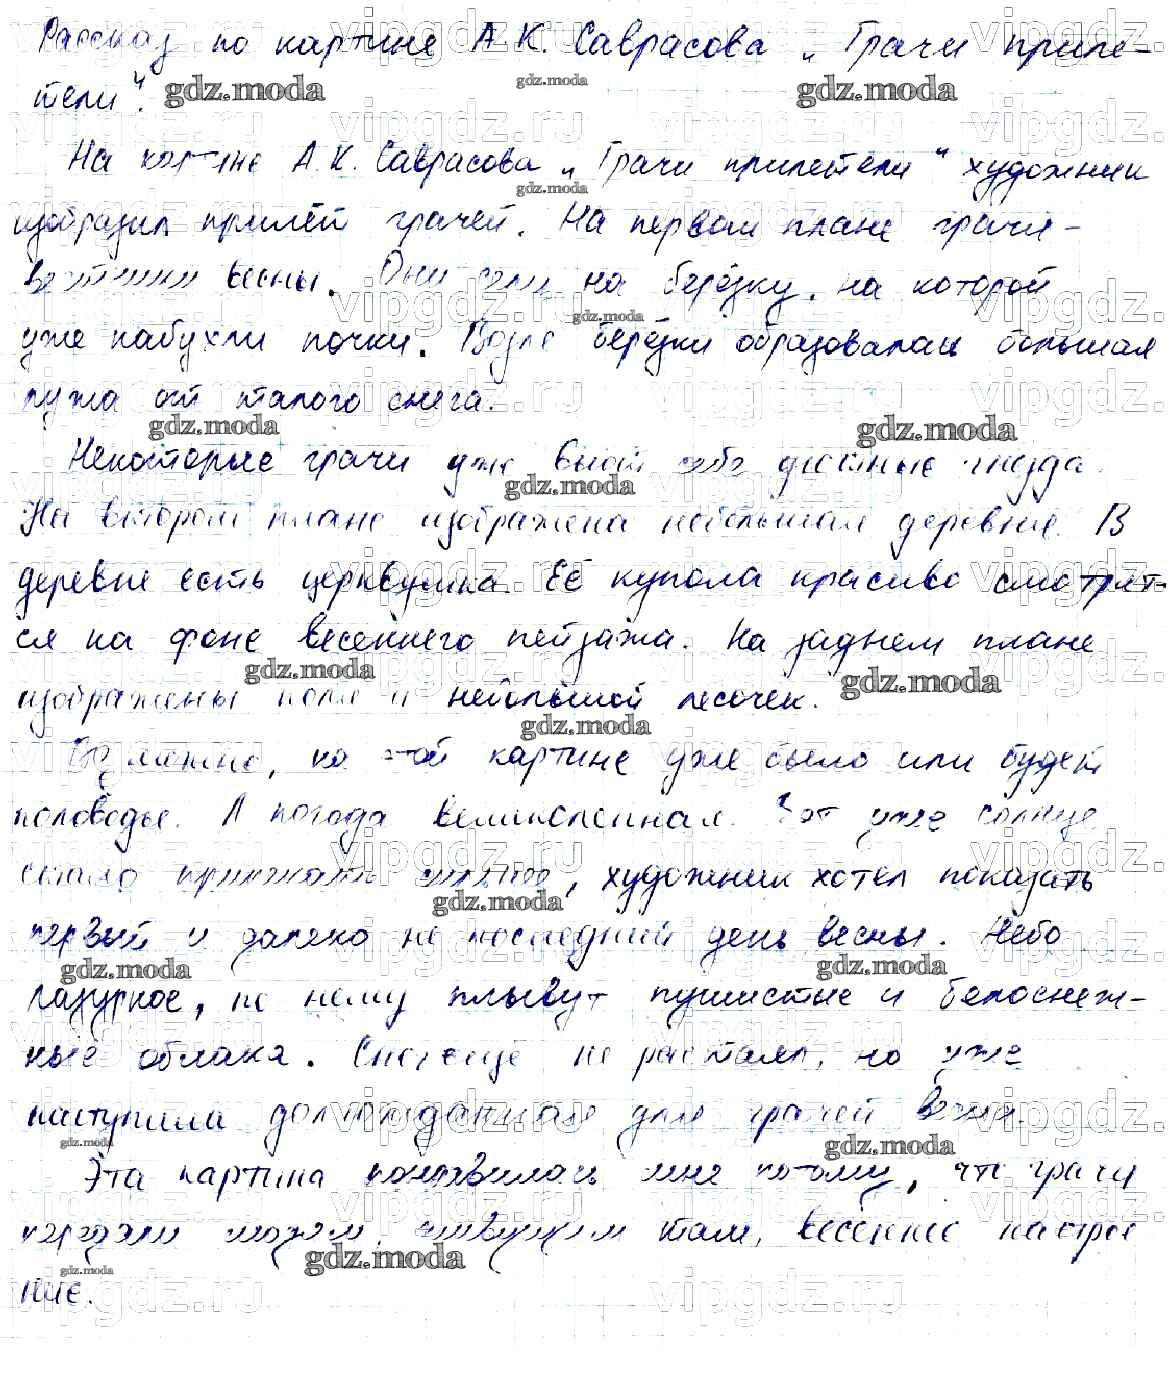 Рассказ по картине А.К. Саврасова „Грачи приле-
тели".
На картине А.К. Саврасова „Грачи прилетели" художник
изобразил прилёт грачей. На первом плане грачи-
вестники весны. Они сели на берёзку, на которой
уже набухли почки. Возле берёзки образовалась большая
лужа от талого снега.
Некоторые грачи уже вьют себе уютные гнёзда.
На втором плане изображена небольшая деревня. В
деревне есть церквушка. Её купола красиво смотрят-
ся на фоне весеннего пейзажа. На заднем плане
изображены поля и небольшой лесочек.
на этой картине уже было или будет
половодье. А погода великолепная. Вот уже солнце
стало пригревать художник хотел показать
первый и далеко не последний день весны. Небо
лазурное, по нему плывут пушистые и белоснеж-
ные облака. Снег ещё не растаял, но уже
наступила долгожданная для грачей весна.
Эта картина понравилась мне потому, что грачи
передали людям, живущим там, весеннее настрое
ние.
gdz.moda
vipgdz.ru